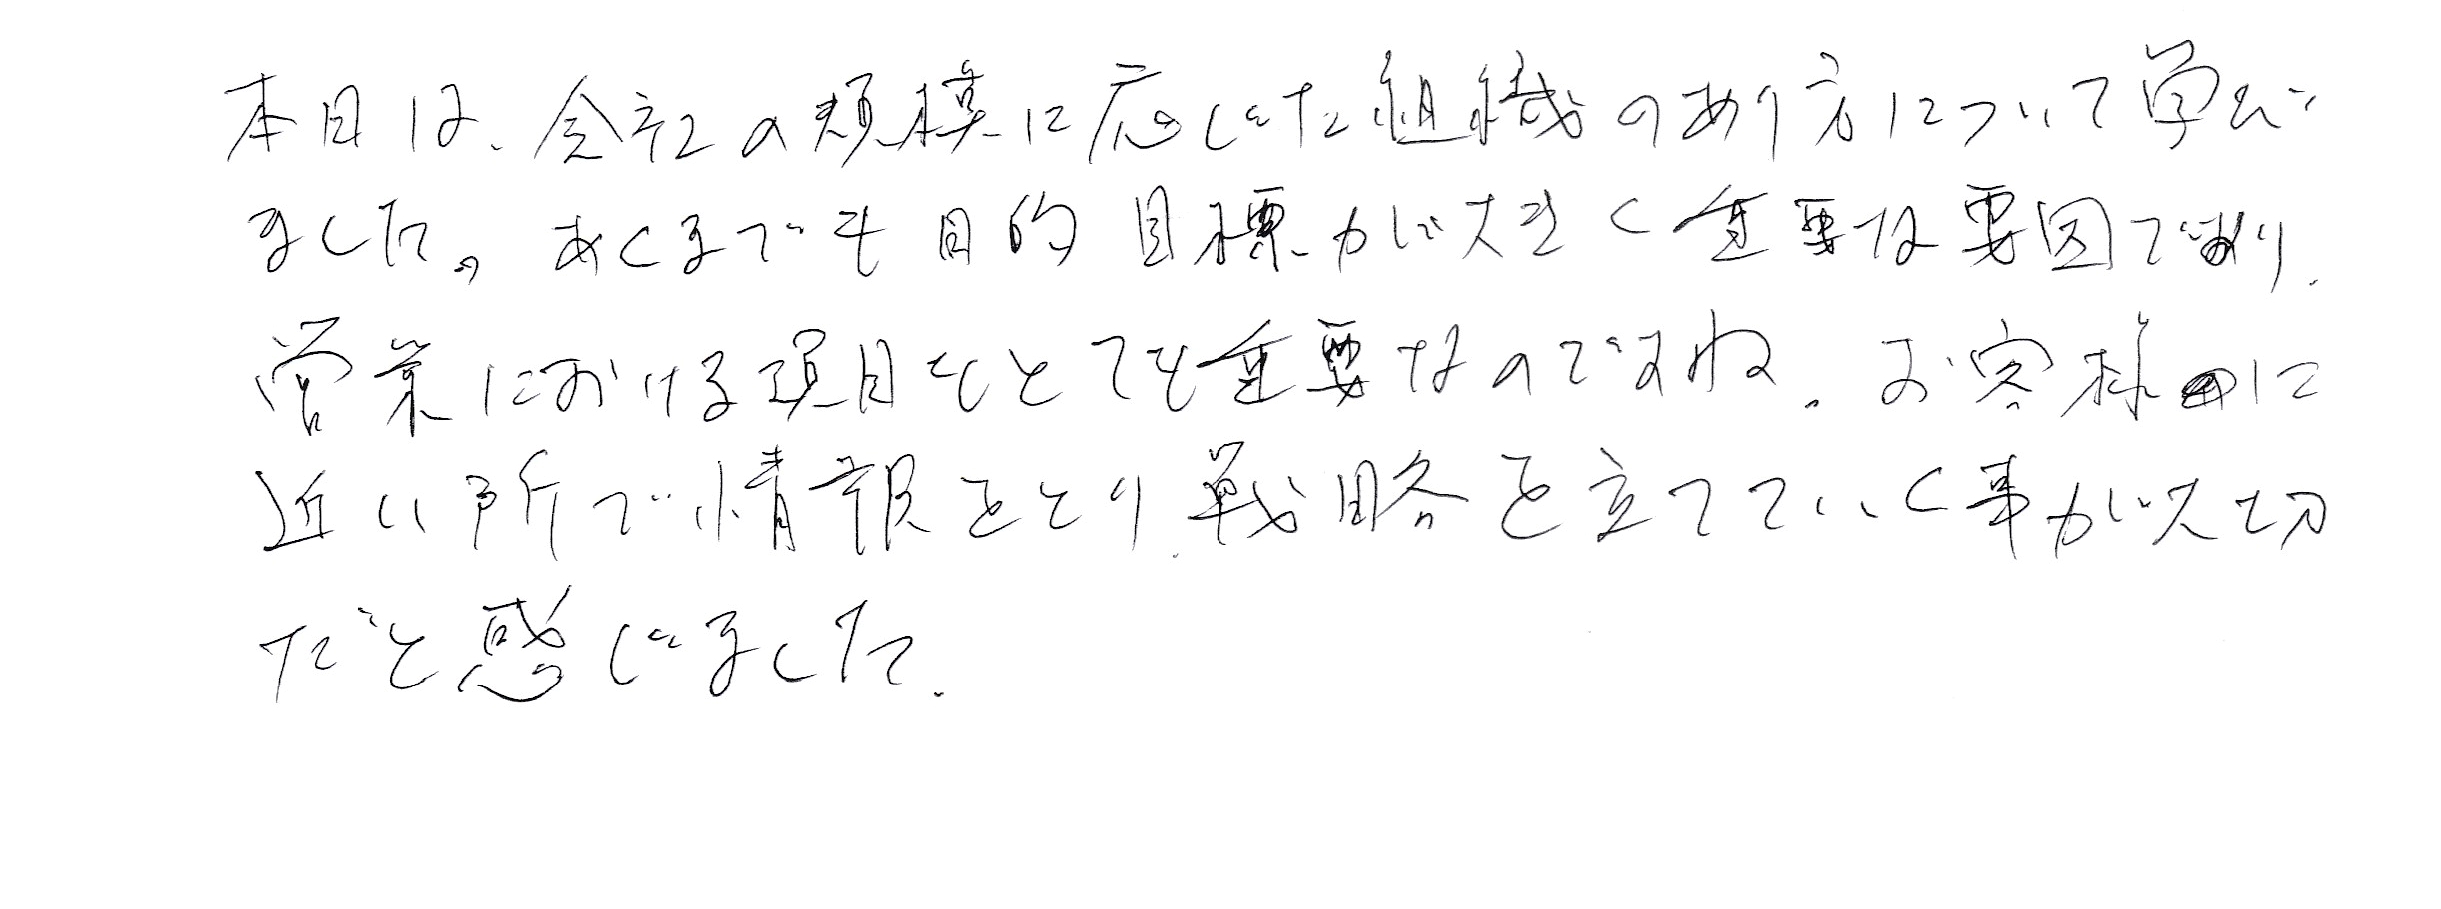 本日は、会社の規模に応じた組織のあり方について学び
ました。あくまでも目的目標が大きく重要な要因であり、
営業における項目もとても重要なのですね。お客様に
近い所で情報をとり、戦略を立てていく事が大切
だと感じました。